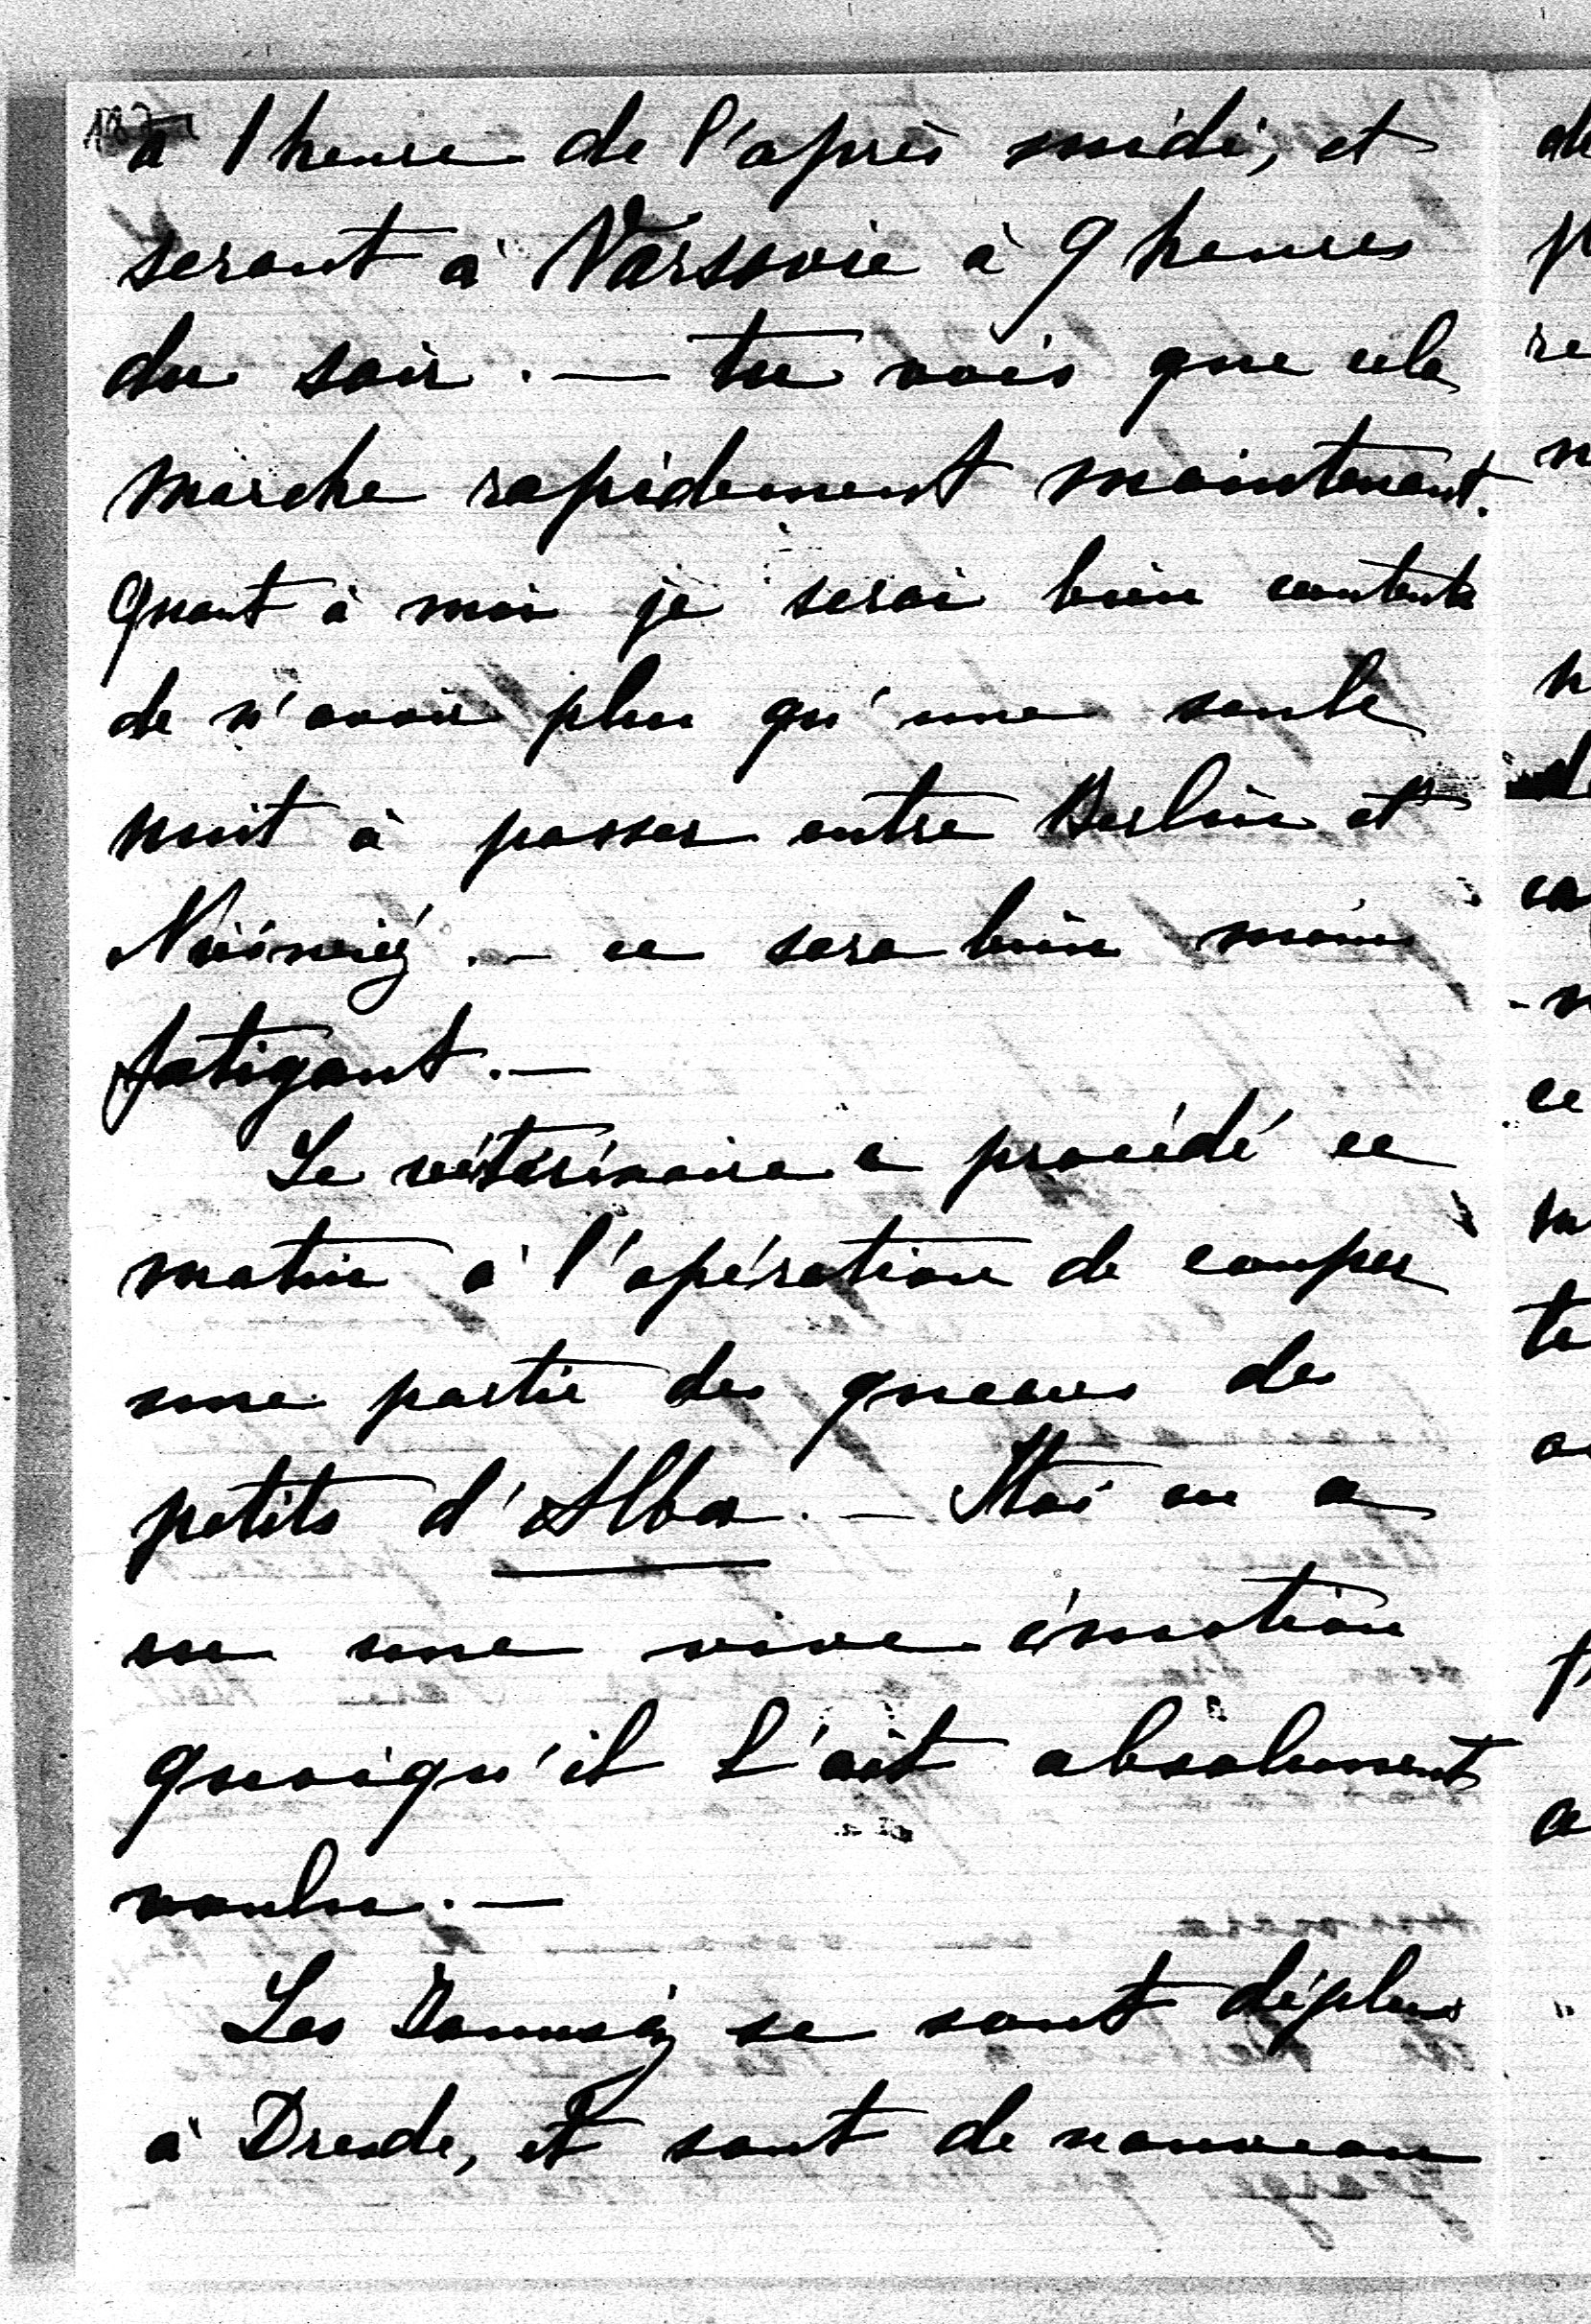 à 1 heure de l'après midi, et
seront à Varsovie à 9 heures
du soir. — tu vois que cela
marche rapidement maintenant.
Quant à moi je serai bien contente
de n'avoir plus qu'une seule
nuit à passer entre Berlin et
Nieśwież. — ce sera bien moins
fatigant. —
Le vétérinaire a procédé ce
matin à l'opération de couper
une partie des queues des
petits d'Alba. — Stas en a
eu une vive émotion
quoiqu'il l'ait absolument
voulu. —
Les se sont déplus
à Dresde, et sont de nouveau